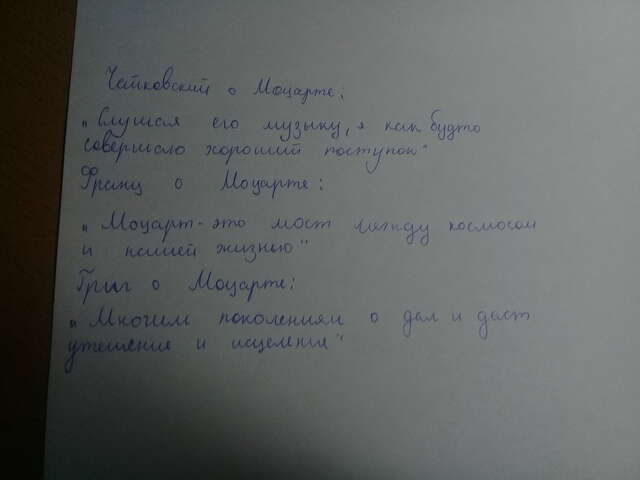 Чайковский о Моцарте:
"Слушая его музыку, я как будто
совершаю хороший поступок"
Франц о Моцарте:
"Моцарт - это мост между космосом
и нашей жизнью"
Григ о Моцарте:
"Многим поколениям о дал и даст
утешение и исцеление"